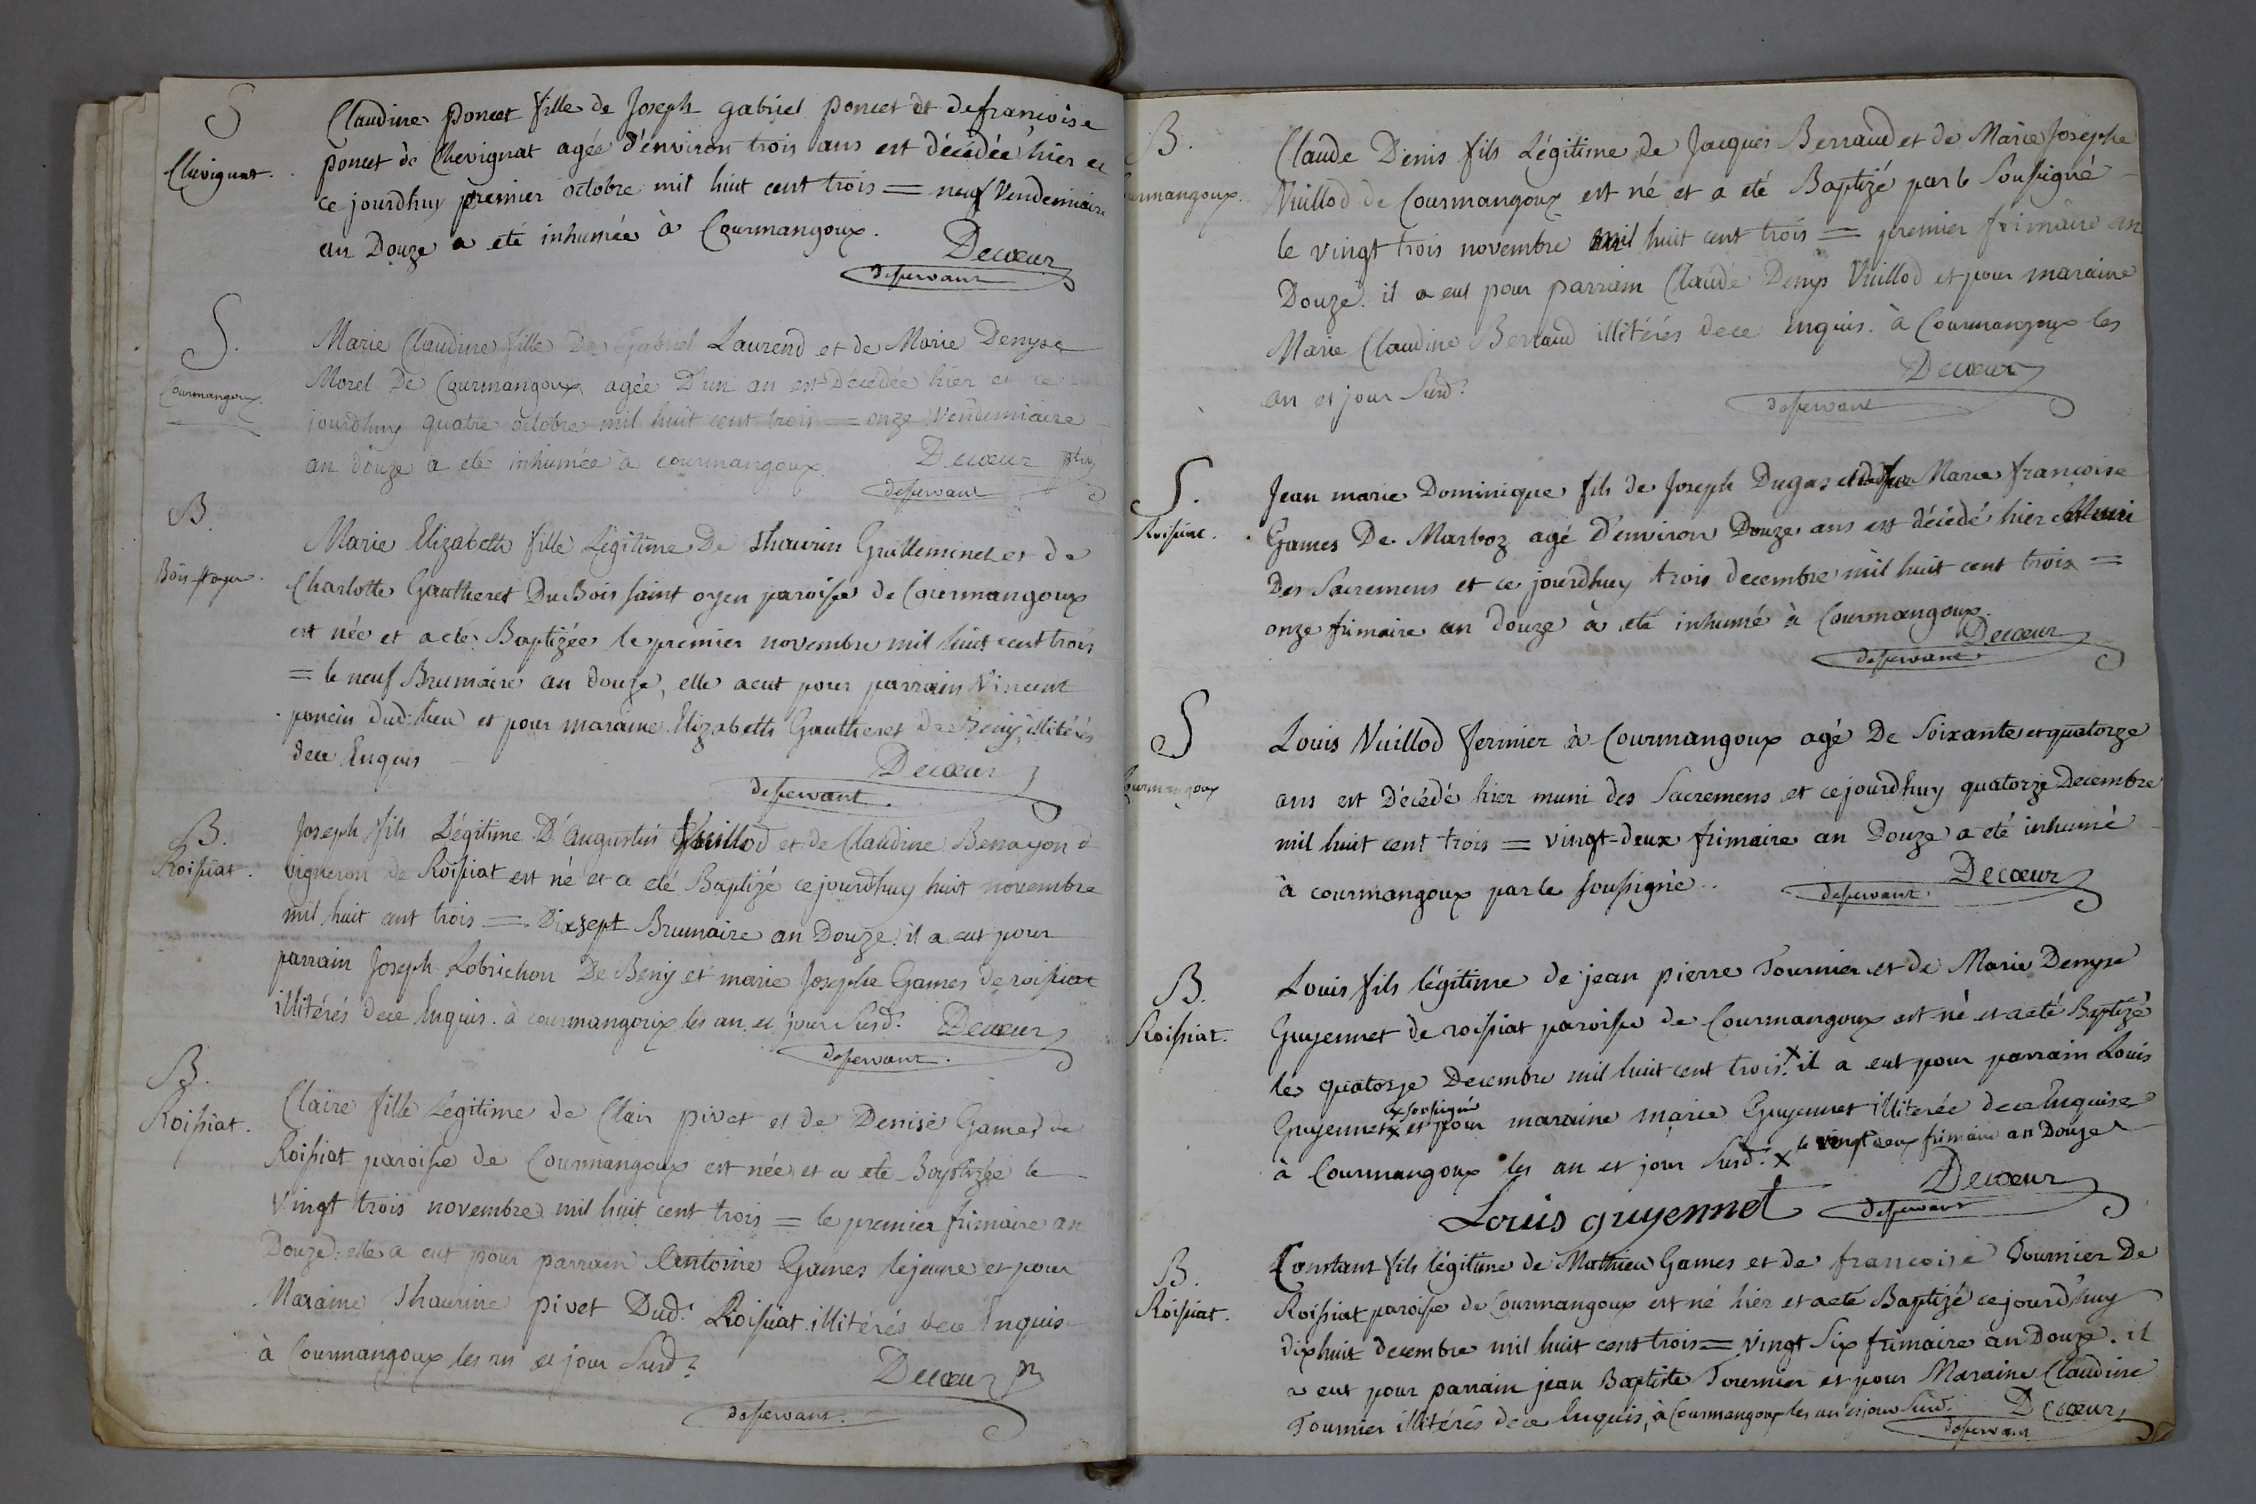 S
Chevignat.
Claudine poncet fille de Joseph gabriel poncet et de francoise
poncet de Chevignat agée d'environ trois ans est décédée hier et
ce jourdhuy premier octobre mil huit cent trois = neuf Vendemiaire
an Douze a eté inhumée à Courmangoux.
Decœur
desservant
S.
Courmangoux.
Marie Claudine fille De Gabriel Laurend et de Marie Denyse
Morel De Courmangoux agée D'un an est Decedée hier et ce
jourdhuy quatre octobre mil huit cent trois = onze Vendemiaire
an douze a eté inhumée à courmangoux. Decœur ptre
desservant
B.
Bois st oyen.
Marie Elizabeth fille Légitime De Thaurin Guilleminet et de
Charlotte Gautheret Du Bois saint oyen paroisse de Courmangoux
est née et a eté Baptizée le premier novembre mil huit cent trois
= le neuf Brumaire an douze, elle a eut pour parrain Vincent
poncin dud. lieu et pour maraine Elizabeth Gautheret de Beny, illitérés
de ce Enquis
Decœur
desservant.
B.
Roissiat.
Joseph fils Légitime D'augustin Vuillod et de Claudine Benayon d
vigneron de Roissiat est né et a eté Baptizé ce jourdhuy huit novembre
mil huit cent trois = Dixsept Brumaire an Douze. il a eut pour
parrain Joseph Lobrichon De Beny et marie Josephe Games de roissiat
illitérés de ce Enquis. à courmangoux les an et jour Susd. Decœur
desservant.
B.
Roissiat.
Claire fille Légitime de Clair pivet et de Denise Games de
Roissiat paroisse de Courmangoux est née et a eté Baptizée le
vingt trois novembre mil huit cent trois = le premier frimaire an
Douze: elle a eut pour parrain Antoine Games lejeune et pour
Maraine Thaurine pivet Dud. Roissiat illitérés de ce Enquis
à Courmangoux les an et jour Susd.
Decœur
desservant.
B.
Courmangoux.
Claude Denis fils Légitime de Jacques Berraud et de Marie Josephe
Vuillod de Courmangoux est né et a eté Baptizé par le Soussigné
le vingt trois novembre mil huit cent trois = premier frimaire an
Douze. il a eut pour parrain Claude Denys Vuillod et pour maraine
Marie Claudine Berraud illitérés de ce enquis. à Courmangoux les
an et jour Susd.
Decœur
desservant
S.
Roissiat.
Jean marie Dominique fils de Joseph Dugas et de Marie francoise
Games De Marboz agé d'environ Douze ans est décédé hier Muni
Des Sacremens et ce jourdhuy trois decembre mil huit cent trois =
onze frimaire an douze à eté inhumé à Courmangoux.
Decœur
desservant
S
Courmangoux
Louis Vuillod fermier à Courmangoux agé De Soixante et quatorze
ans est Décédé hier muni des Sacremens et ce jourdhuy quatorze Decembre
mil huit cent trois = vingt-deux frimaire an Douze a eté inhumé
à courmangoux par le soussigné..
Decœur
desservant.
B.
Roissiat.
Louis fils légitime de jean pierre Tournier et de Marie Denyse
Guyennet de roissiat paroisse de Courmangoux est né et a eté Baptizé
le quatorze Decembre mil huit cent trois. x il a eut pour parrain Louis
x soussigné
Guyennet x et pour maraine marie Guyennet illiterée de ce Enquise
à Courmangoux les an et jour Susd. x le vingt deux frimaire an Douze
Decœur
Louis guyennet
desservant
B.
Roissiat.
Constant fils légitime de Mathieu Games et de francoise Tournier De
Roissiat paroisse de Courmangoux est né hier et a eté Baptizé ce jourd'huy
dixhuit decembre mil huit cent trois = vingt Six frimaire an Douze. il
a eut pour parrain jean Baptiste Tournier et pour Maraine Claudine
Tournier illitérés de ce Enquis, à Courmangoux les an et jour Susd. Decœur
desservant